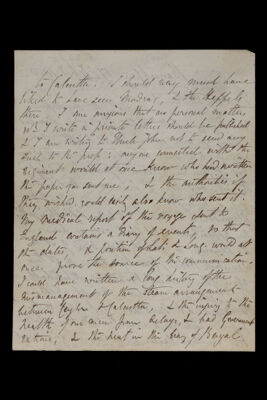 to Calcutta. I should very much have
liked to have seen Madras, & the people
there. I am anxious that no personal matters
wh. I write in private letters should be published
& I am writing to Uncle John not to send any
such to the press: anyone connected with the
Regiment would at once know who had written
the paper you sent me, & the authorities if
they wished, could easily also know who sent it.
My medical report of the voyage sent to
England contains a diary of events, so that
dates, & position of lat: & long: would at
once prove the source of the communication.
I could have written a long history of the
mismanagement of the steam arrangement
between Ceylon & Calcutta, & the injury to the
health of our men from delays, & bad Government
rations, & the heat in the Bay of Bengal